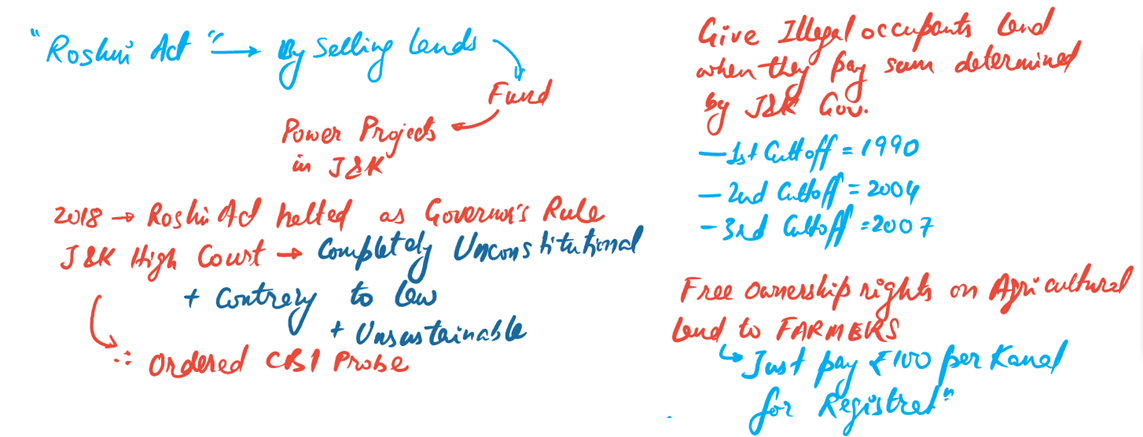 "Roshni Act" → By Selling Lands
Fund
Power Projects
in J&K
2018 → Roshni Act halted as Governor's Rule
J&K High Court → Completely Unconstitutional
+ Contrary to law
+ Unsustainable
∴ Ordered CBI Probe
Give Illegal occupants land
when they pay sum determined
by J&K Gov.
- 1st Cuttoff = 1990
- 2nd Cuttoff = 2004
- 3rd Cuttoff = 2007
Free ownership rights on Agricultural
land to FARMERS
↳ Just pay ₹100 per Kanal
for Registratn